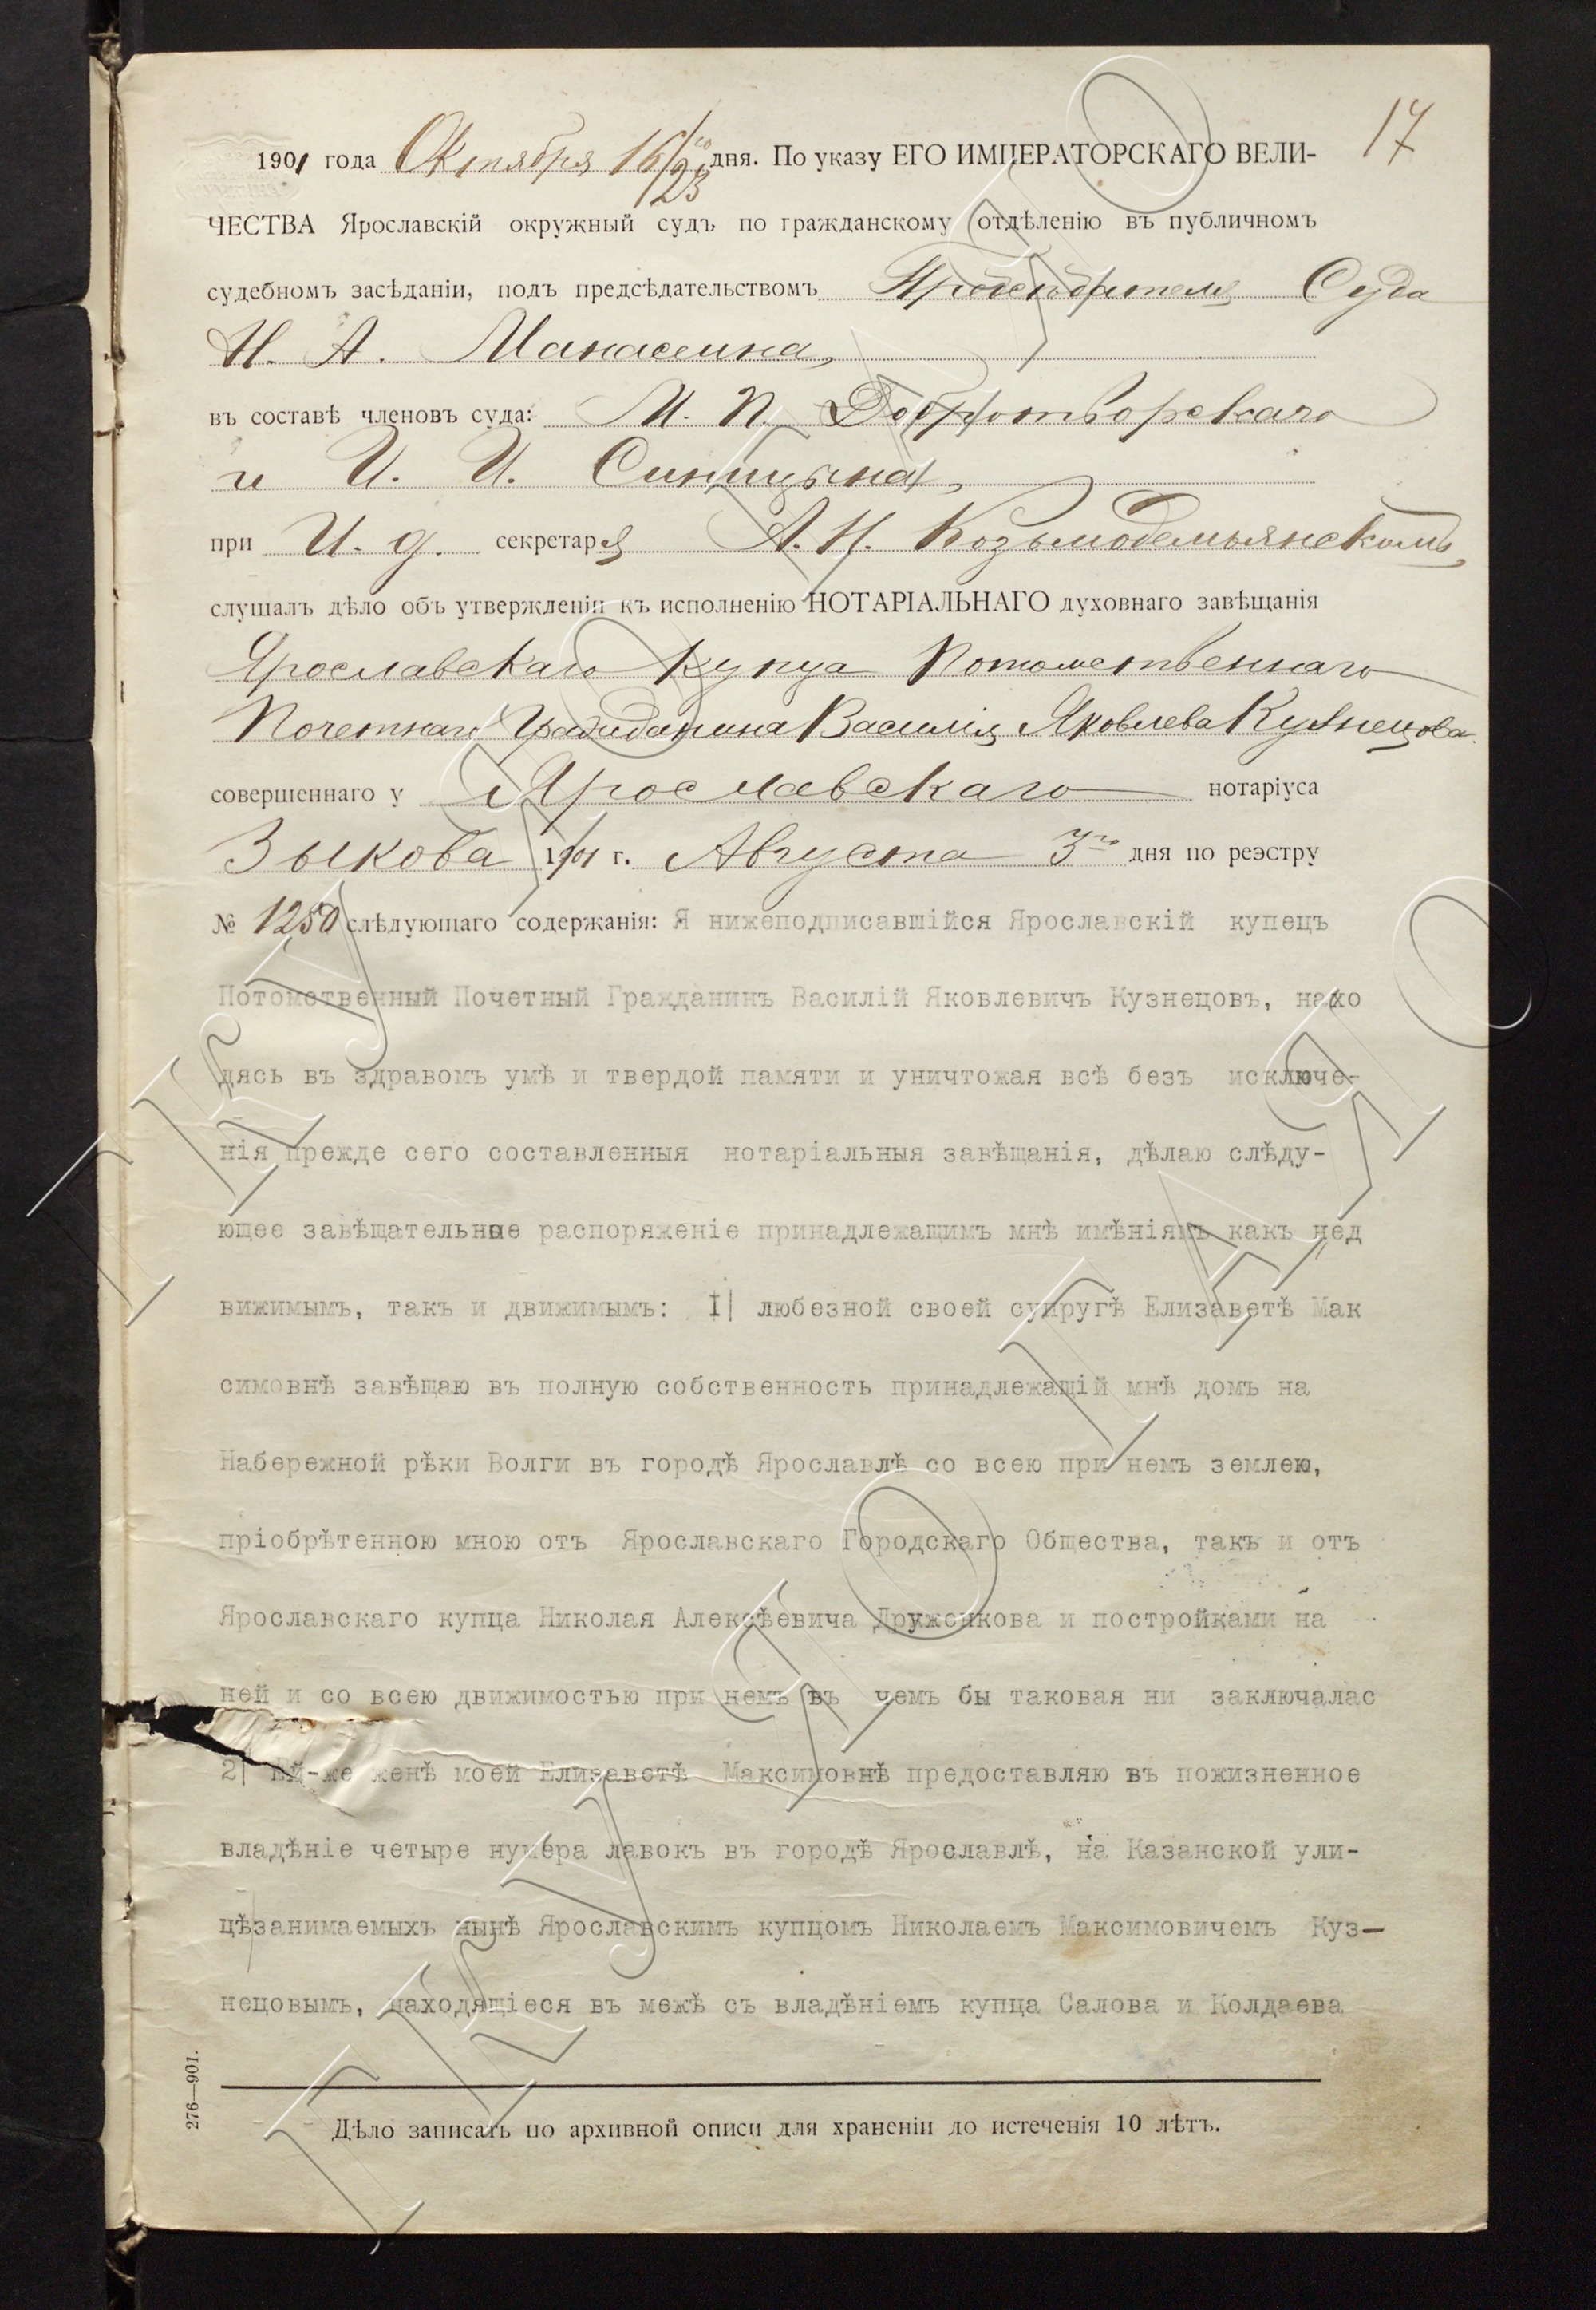 17
1901 года Октября 16/23го дня. По указу ЕГО ИМПЕРАТОРСКАГО ВЕЛИ-
ЧЕСТВА Ярославскій окружный судъ по гражданскому отдѣленію въ публичномъ
судебномъ засѣданіи, подъ предсѣдательствомъ Предсѣдателя Суда
Н. А. Манасеина,
въ составѣ членовъ суда: М. П. Добротворскаго
и И. И. Синицына,
при И. д. секретаря А. Н. Козьмодемьянскомъ,
слушалъ дѣло объ утвержденіи къ исполненію НОТАРІАЛЬНАГО духовнаго завѣщанія
Ярославскаго купца Потомственнаго
Почетнаго Гражданина Василія Яковлева Кузнецова
совершеннаго у Ярославскаго нотаріуса
Зыкова 1901 г. Августа 3го дня по реэстру
№ 1250 слѣдующаго содержанія: Я нижеподписавшійся Ярославскій купецъ
Потомственный Почетный Гражданинъ Василій Яковлевичъ Кузнецовъ, нахо
дясь въ здравомъ умѣ и твердой памяти и уничтожая всѣ безъ исключе-
нія прежде сего составленныя нотаріальныя завѣщанія, дѣлаю слѣду-
ющее завѣщательное распоряженіе принадлежащимъ мнѣ имѣніямъ какъ нед
вижимымъ, такъ и движимымъ: I| любезной своей супругѣ Елизаветѣ Мак
симовнѣ завѣщаю въ полную собственность принадлежащій мнѣ домъ на
Набережной рѣки Волги въ городѣ Ярославлѣ со всею при немъ землею,
пріобрѣтенною мною отъ Ярославскаго Городскаго Общества, такъ и отъ
Ярославскаго купца Николая Алексѣевича Дружинкова и постройками на
ней и со всею движимостью при немъ въ чемъ бы таковая ни заключалас
2| Ей-же женѣ моей Елизаветѣ Максимовнѣ предоставляю въ пожизненное
владѣніе четыре нумера лавокъ въ городѣ Ярославлѣ, на Казанской ули-
цѣзанимаемыхъ нынѣ Ярославскимъ купцомъ Николаемъ Максимовичемъ Куз-
нецовымъ, находящіеся въ межѣ съ владѣніемъ купца Салова и Колдаева
276—901.
Дѣло записать по архивной описи для храненіи до истеченія 10 лѣтъ.